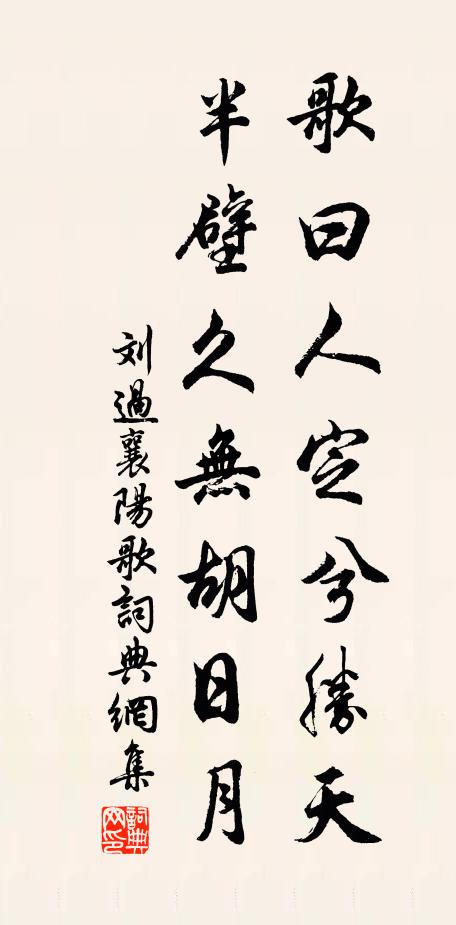 歌曰人定兮勝天
半壁久無胡日月
刘過襄陽歌詞典網集
詞典网印